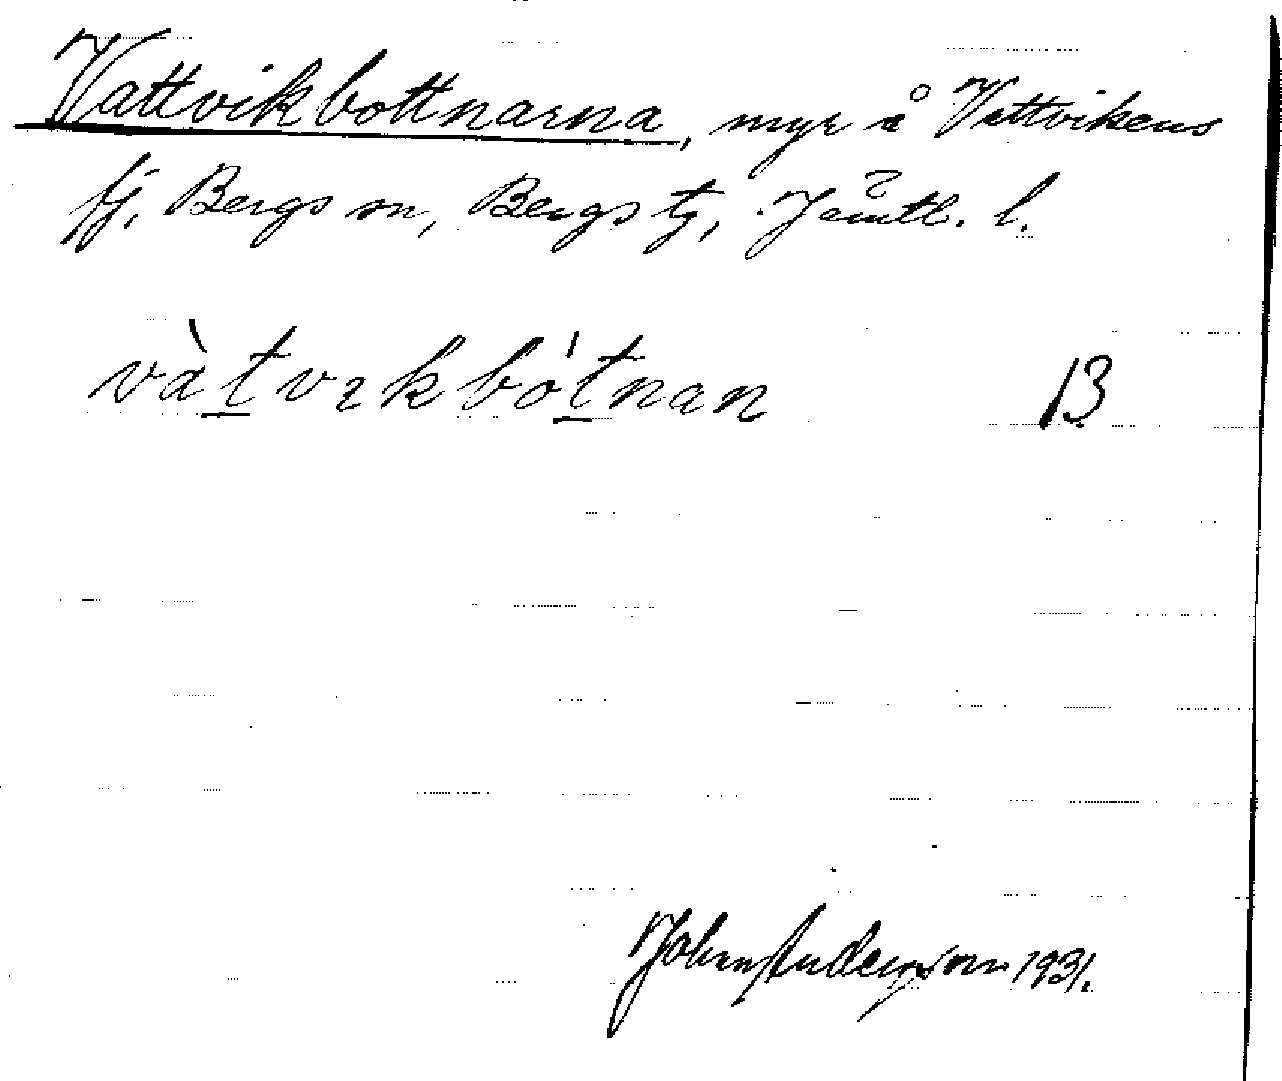 Vattvikbottnarna, myr å Vattvikens
fj, Bergs sn, Bergs tg, Jämtl. l.
vàt̲vɪkbót̲nan 13
John Anderson 1931.